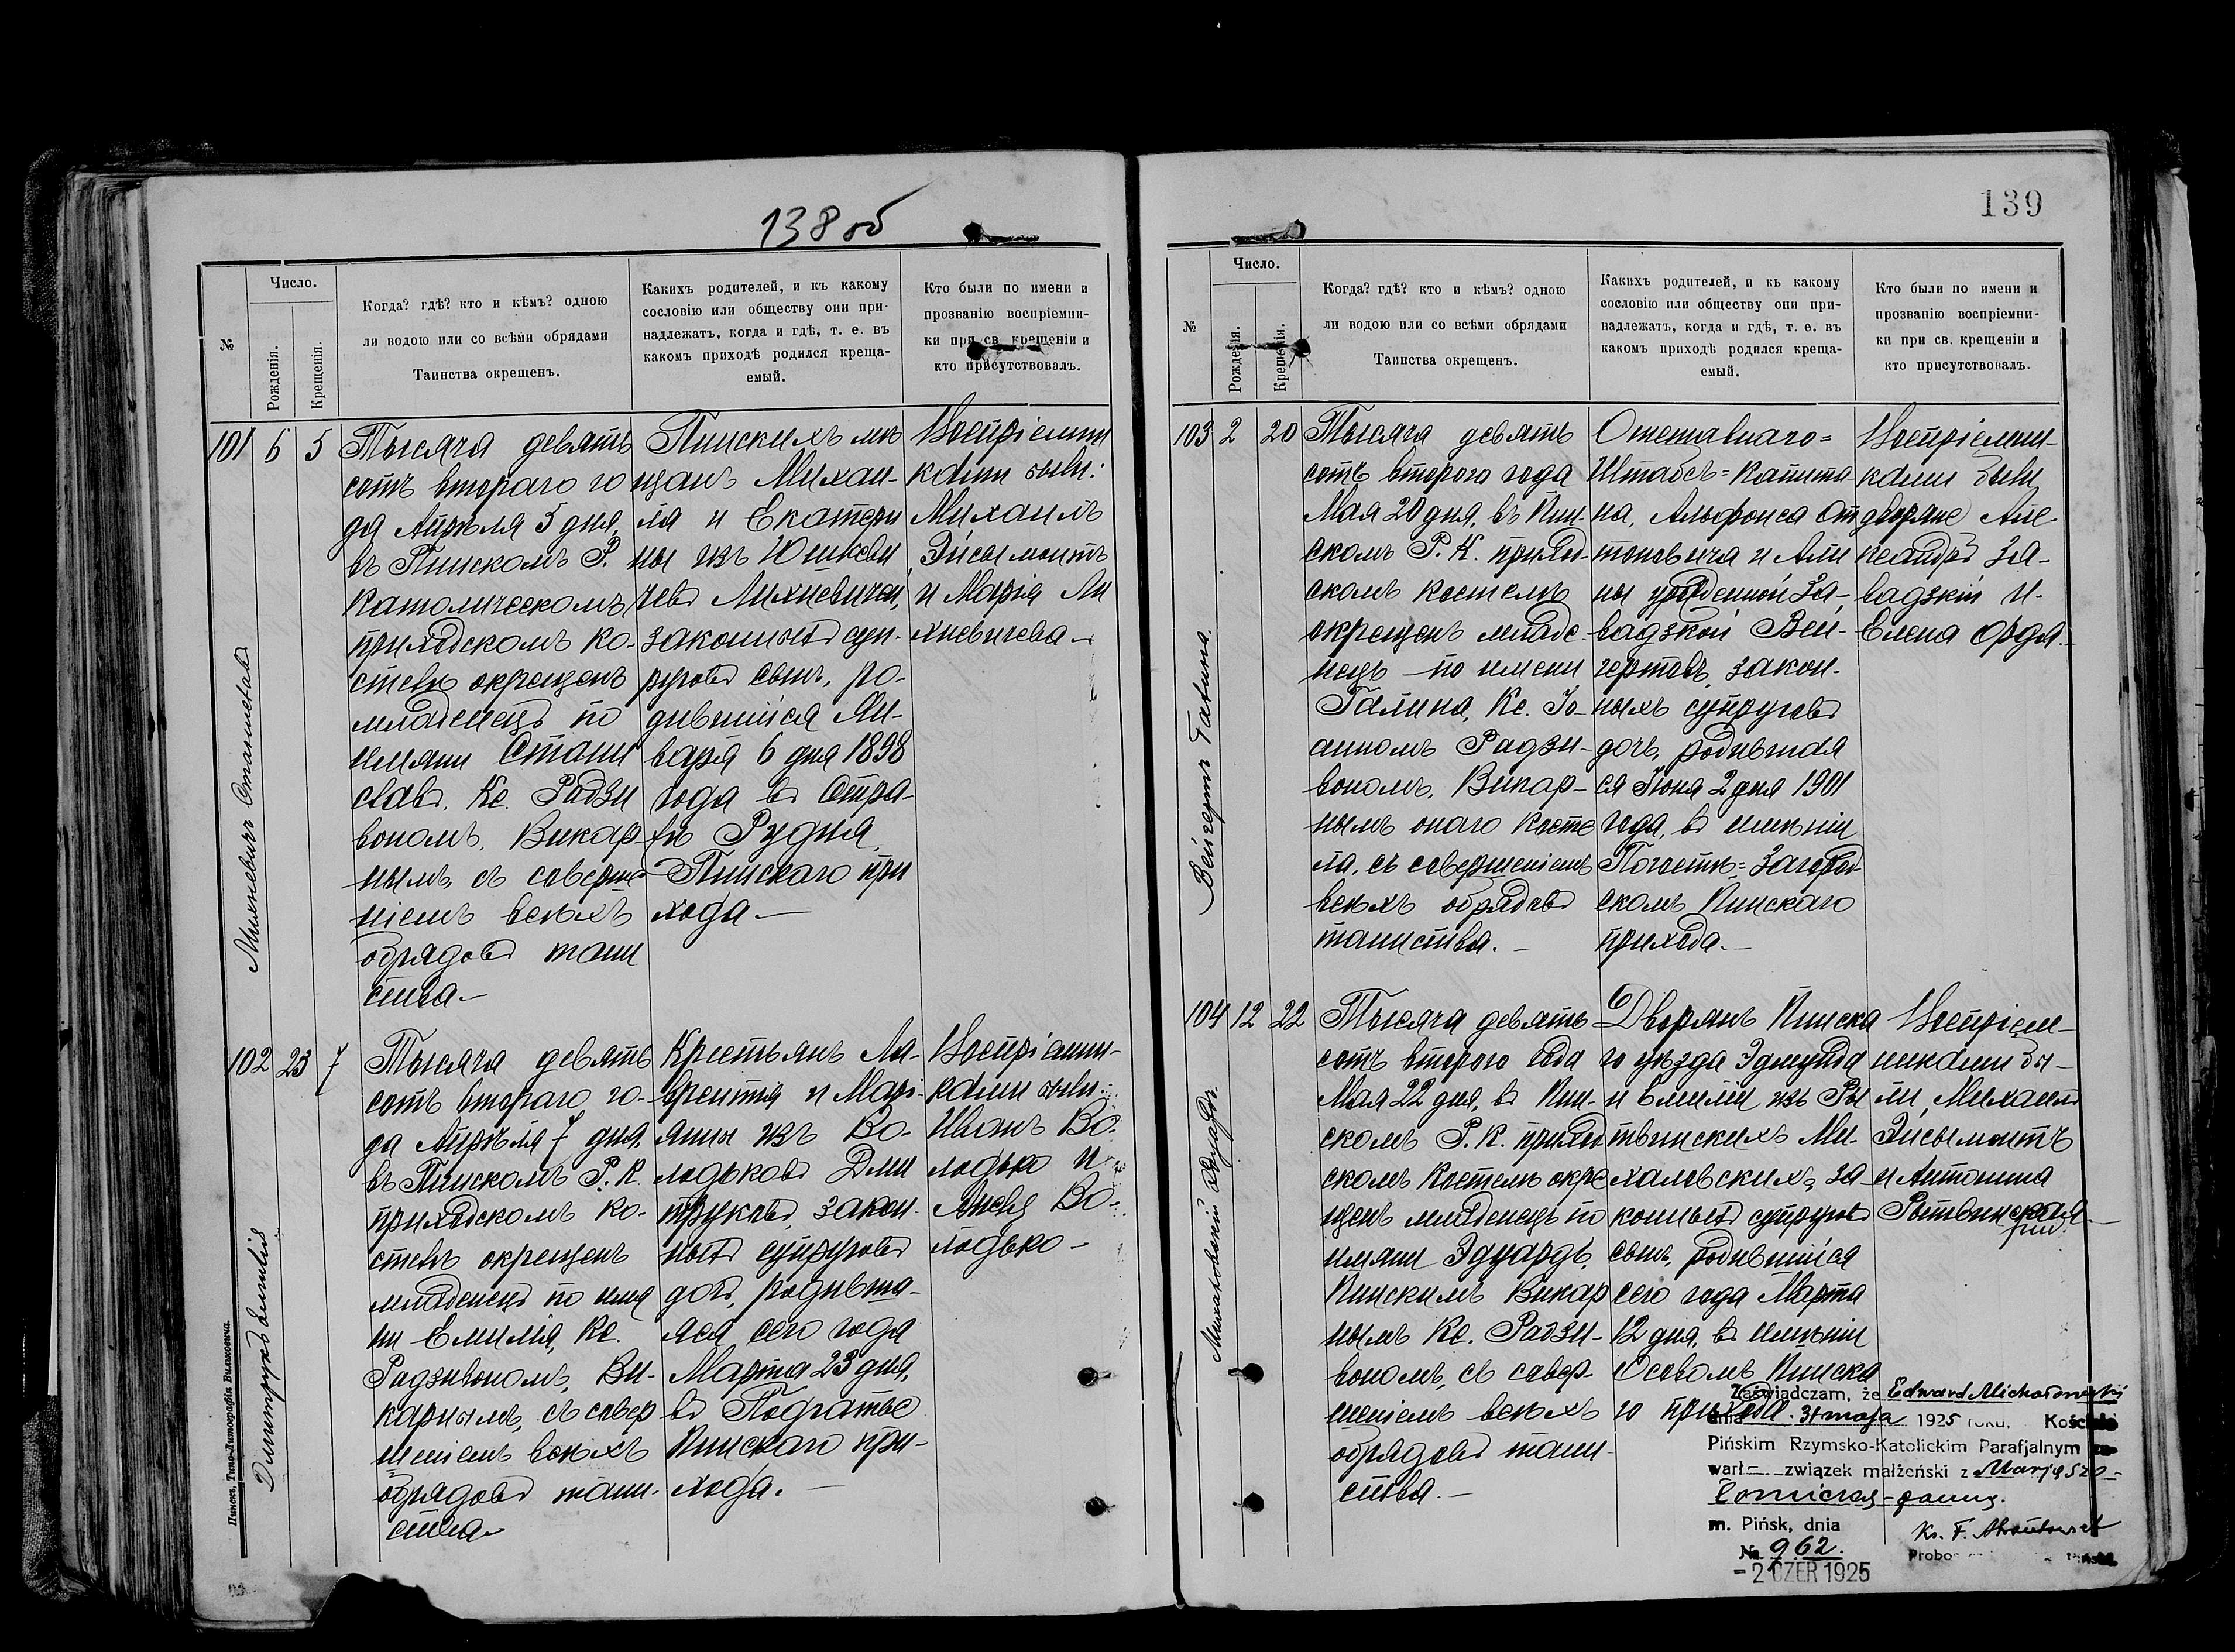 138 об
№
Число.
Рожденія.
Крещенія.
Когда? гдѣ? кто и кѣмъ? одною
ли водою или со всѣми обрядами
Таинства окрещенъ.
Какихъ родителей, и къ какому
сословію или обществу они при-
надлежатъ, когда и гдѣ, т. е. въ
какомъ приходѣ родился креща-
емый.
Кто были по имени и
прозванію воспріемни-
ки при св. крещеніи и
кто присутствовалъ.
101 6 5
Михневичъ Станиславъ
Тысяча девять
сотъ втораго го
да Апрѣля 5 дня,
въ Пинскомъ Р.
Католическомъ
приходскомъ ко-
стелѣ окрещенъ
младенецъ по
имяни Стани
славъ, Кс. Радзи
вономъ, Викар-
нымъ, съ соверше
ніемъ всѣхъ
обрядовъ таин
ства.-
Пинскихъ мѣ
щанъ Михаи-
ла и Екатери
ны изъ Юшкеви
чевъ Михневичей,
законныхъ суп-
руговъ сынъ, ро-
дившійся Ян-
варя 6 дня 1898
года въ
Рудня,
Пинскаго при
хода.-
Воспріемни
ками были:
Михаилъ
Эйсымонтъ
и Марія Ми
хневичева-
102 23 7
Тысяча девять
сотъ втораго го-
да Апрѣля 7 дня,
въ Пинскомъ Р. К.
приходскомъ ко-
стелѣ окрещенъ
младенецъ по имя
ни Емилія, Кс.
Радзивономъ, Ви-
карнымъ, съ совер
шеніемъ всѣхъ
обрядовъ таин-
ства-
Крестьянъ Ла-
врентія и Марі-
янны изъ Во-
лодьковъ Дми
труковъ, закон-
ныхъ супруговъ
дочь, родивша-
яся сего года
Марта 23 дня,
въ
Пинскаго при-
хода.-
Воспріемни-
ками были:
Иванъ Во-
лодько и
Во-
лодько-
Пинскъ, Типо-Литографія Вильковича.
139
№
Число.
Рожденія.
Крещенія.
Когда? гдѣ? кто и кѣмъ? одною
ли водою или со всѣми обрядами
Таинства окрещенъ.
Какихъ родителей, и къ какому
сословію или обществу они при-
надлежатъ, когда и гдѣ, т. е. въ
какомъ приходѣ родился креща-
емый.
Кто были по имени и
прозванію воспріемни-
ки при св. крещеніи и
кто присутствовалъ.
103 2 20
Вейгертъ Галина
Тысяча девять
сотъ второго года
Мая 20 дня, въ Пин-
скомъ Р. К. приход-
скомъ костелѣ
окрещенъ младе-
нецъ по имени
Галина, Кс. Іо-
анномъ Радзи-
вономъ, Викар-
нымъ онаго Косте
ла, съ совершеніемъ
всѣхъ обрядовъ
таинства.-
Отставнаго=
Штабсъ=Капита-
на, Альфонса Ан
тоновича и Али
ны урожденной За-
вадзкой Вей-
гертовъ, закон-
ныхъ супруговъ
дочь, родившая
ся Іюня 2 дня 1901
года, въ имѣніи
Погостѣ=Загород-
скомъ Пинскаго
прихода.-
Воспріемни-
ками были
дворяне Але-
ксандръ За-
вадзкій и
Елена Орда.-
104 12 22
Михаловскій Эдуардъ.
Тысяча девять
сотъ второго года
Мая 22 дня, въ Пин-
скомъ Р. К. приход
скомъ Костелѣ окре
щенъ младенецъ по
имяни Эдуардъ,
Пинскимъ Викар
нымъ Кс. Радзи-
вономъ, съ совер-
шеніемъ всѣхъ
обрядовъ таин-
ства.-
Дворянъ Пинска
го уѣзда Эдмунда
и Емиліи изъ Ры
твинскихъ Ми-
халовскихъ, за-
конныхъ супруговъ
сынъ, родившійся
сего года Марта
12 дня, въ имѣніи
Особомъ Пинска
го прихода.
Воспріем-
никами бы-
ли, Михаилъ
Эйсымонтъ
и Антонина
Рытвинская-
Zaświadczam, że Edward Michałowski
dnia 31 maja 1925 roku, Kościele
Pińskim Rzymsko-Katolickim Parafjalnym za-
warł związek małżeński z Marją
panną.
m. Pińsk, dnia
Ks. F.
№ 962.
- 2 CZER 1925